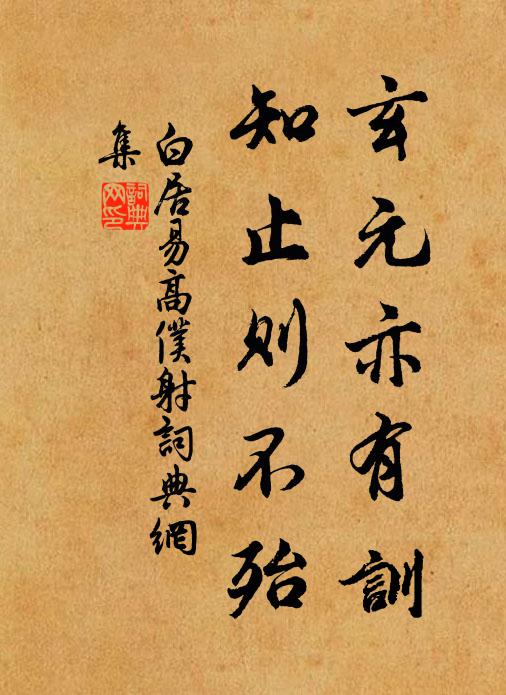 玄元亦有訓
知止則不殆
白居易高僕射詞典網
集
詞典
网印